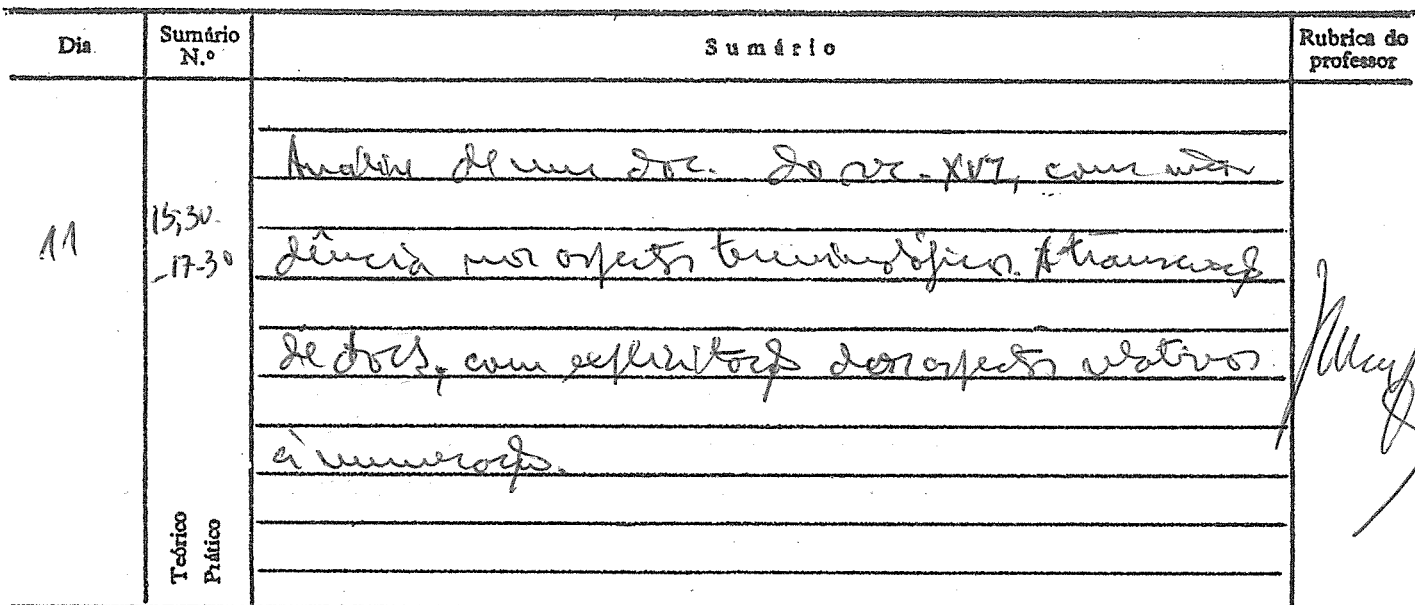 Dia
Sumário
N.º
Sumário
Rubrica do
professor
11
15,30-
-17-30
Análise de um doc. do séc. XVI, com inci
dência nos aspectos terminológicos. A transcrição
de docs, com explicitação dos aspectos relativos
à numeração.
Teórico
Prático